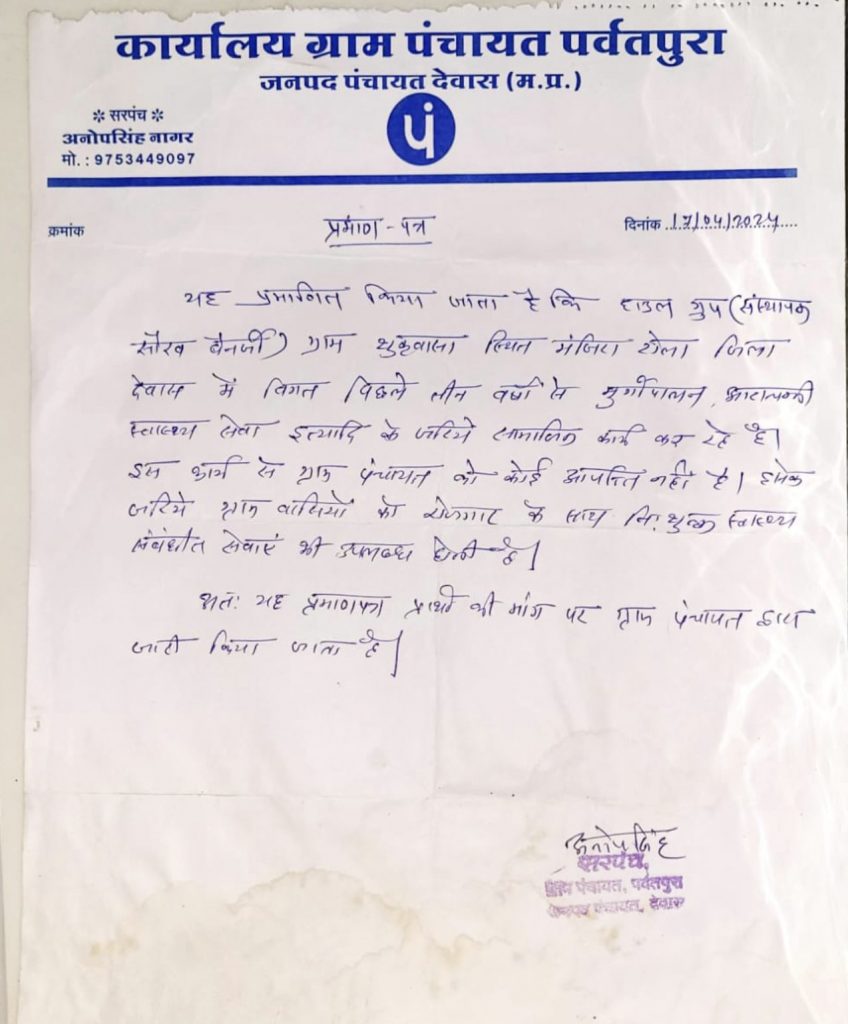 कार्यालय ग्राम पंचायत पर्वतपुरा
जनपद पंचायत देवास (म.प्र.)
पं
❊ सरपंच ❊
अनोपसिंह नागर
मो. : 9753449097
क्रमांक
प्रमाण - पत्र
दिनांक 17/04/2024
यह प्रमाणित किया जाता है कि हाउल ग्रुप (संस्थापक
सौरव बैनर्जी) ग्राम शुक्रवासा स्थित टोला जिला
देवास में विगत पिछले तीन वर्षो से मुर्गीपालन,
स्वास्थ्य सेवा इत्यादि के जरिये सामाजिक कार्य कर रहे है।
इस कार्य से ग्राम पंचायत को कोई आपत्ति नहीं है। इनके
जरिये ग्राम वासियों को रोजगार के साथ नि:शुल्क स्वास्थ्य
संबंधीत सेवाएं भी उपलब्ध होती है।
अत: यह प्रमाणपत्र प्रार्थी की मांग पर ग्राम पंचायत द्वारा
जारी किया जाता है।
अनोपसिंह
सरपंच,
ग्राम पंचायत, पर्वतपुरा
जनपद पंचायत, देवास